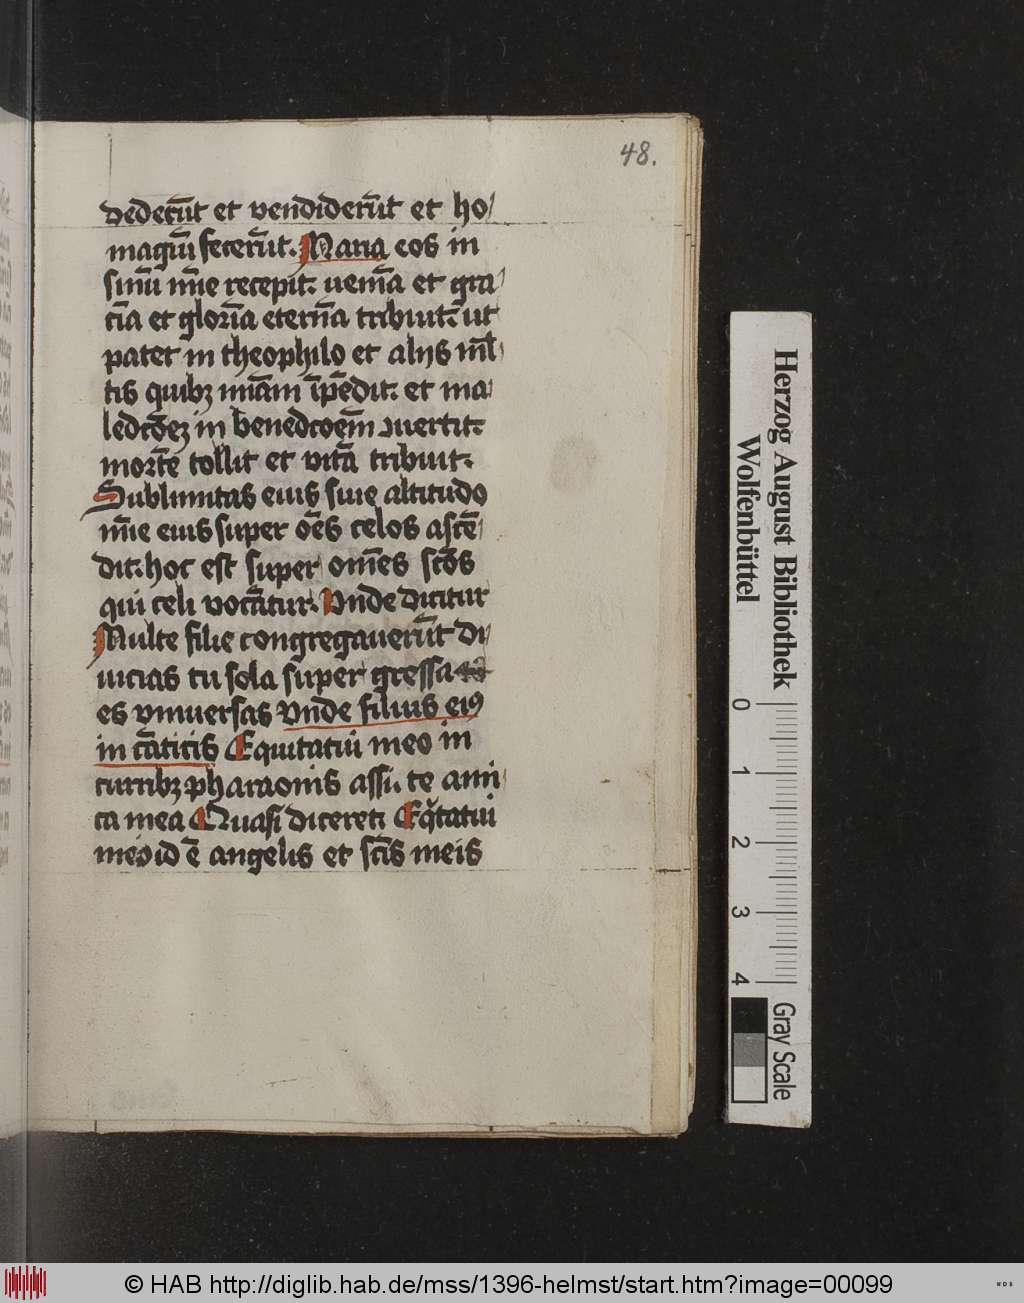 48.
dedert̄ et vendiderūt et ho/
magiū fecerūt. Maria eos in
sinū mīe recepit. uenīa et gra/
cīa et glorīa eternā tribuit. ut
patet in theophilo et alijs ml̄/
tis quibꝫ mīam īpēdit. et ma/
ledcōeꝫ in benedcoēm ↄuertit.
mortē tollit et vitā tribuit.
Sublimitas eius siue altitudo
mīe eius super oēs celos ascē/
dit. hoc est super omēs scōs
qui celi vocātur. Vnde dicitur
Multe filie congregauerūt di/
uicias tu sola super gressa
es vniuersas vnde filius eiꝰ
in cāticis Equitatui meo in
curribꝫ pharaonis assi. te ami/
ca mea Quasi diceret. Eqͥtatui
meo id ē angelis et scīs meis
Herzog August Bibliothek
Wolfenbüttel
0 1 2 3 4
Gray Scale
© HAB http://diglib.hab.de/mss/1396-helmst/start.htm?image=00099
WDB